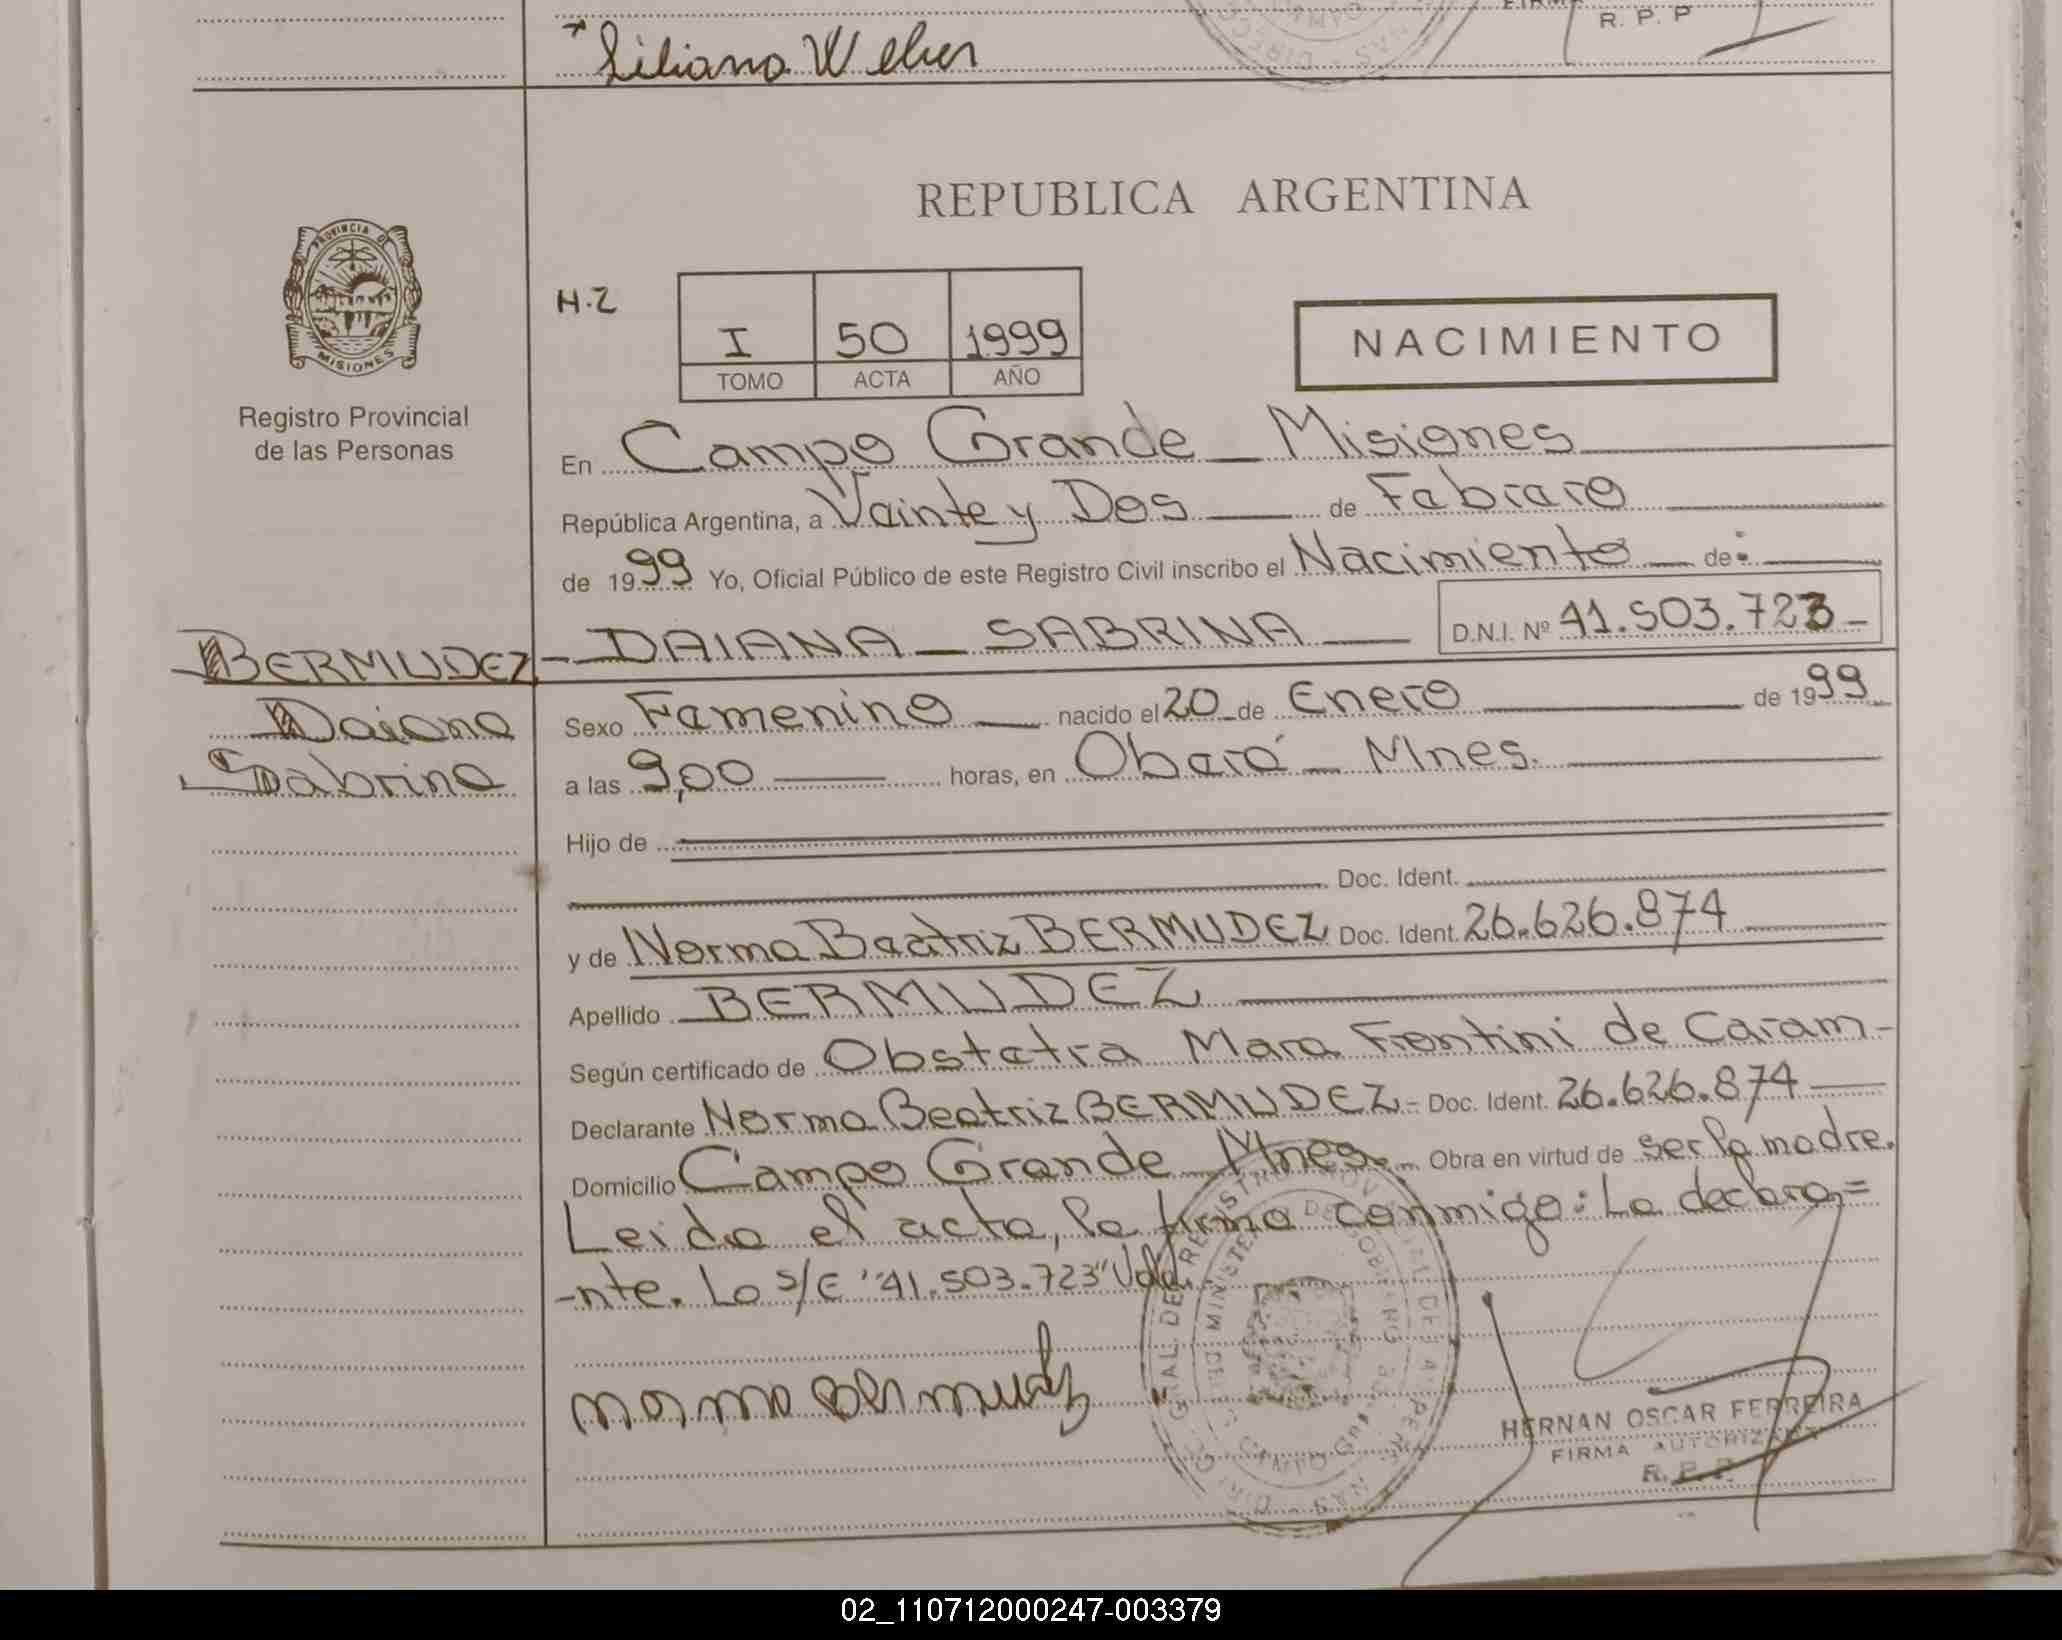 FIRMA
R. P. P
Liliana Weber
REPUBLICA ARGENTINA
PROVINCIA DE
MISIONES
Registro Provincial
de las Personas
H.2
I 50 1999
TOMO ACTA AÑO
NACIMIENTO
En Campo Grande Misiones
República Argentina, a Veinte y Dos de Febrero
de 1999 Yo, Oficial Público de este Registro Civil inscribo el Nacimiento de:
DAIANA SABRINA D.N.I. Nº 41.503.723
BERMUDEZ
Daiana
Sabrina
Sexo Femenino nacido el 20 de Enero de 1999
a las 9,00 horas, en Oberá Mnes.
Hijo de
Doc. Ident.
y de Norma Beatriz BERMUDEZ Doc. Ident. 26.626.874
Apellido BERMUDEZ
Según certificado de Obstetra Mara Frontini de Caram-
Declarante Norma Beatriz BERMUDEZ- Doc. Ident. 26.626.874
Domicilio Campo Grande Mnes. Obra en virtud de ser la madre.
Leida el acta, la firma conmigo: La declara=
-nte. Lo s/E "41.503.723" Vale.
Norma Bermudez
HERNAN OSCAR FERREIRA
FIRMA AUTORIZADA
R. P. P.
02_110712000247-003379